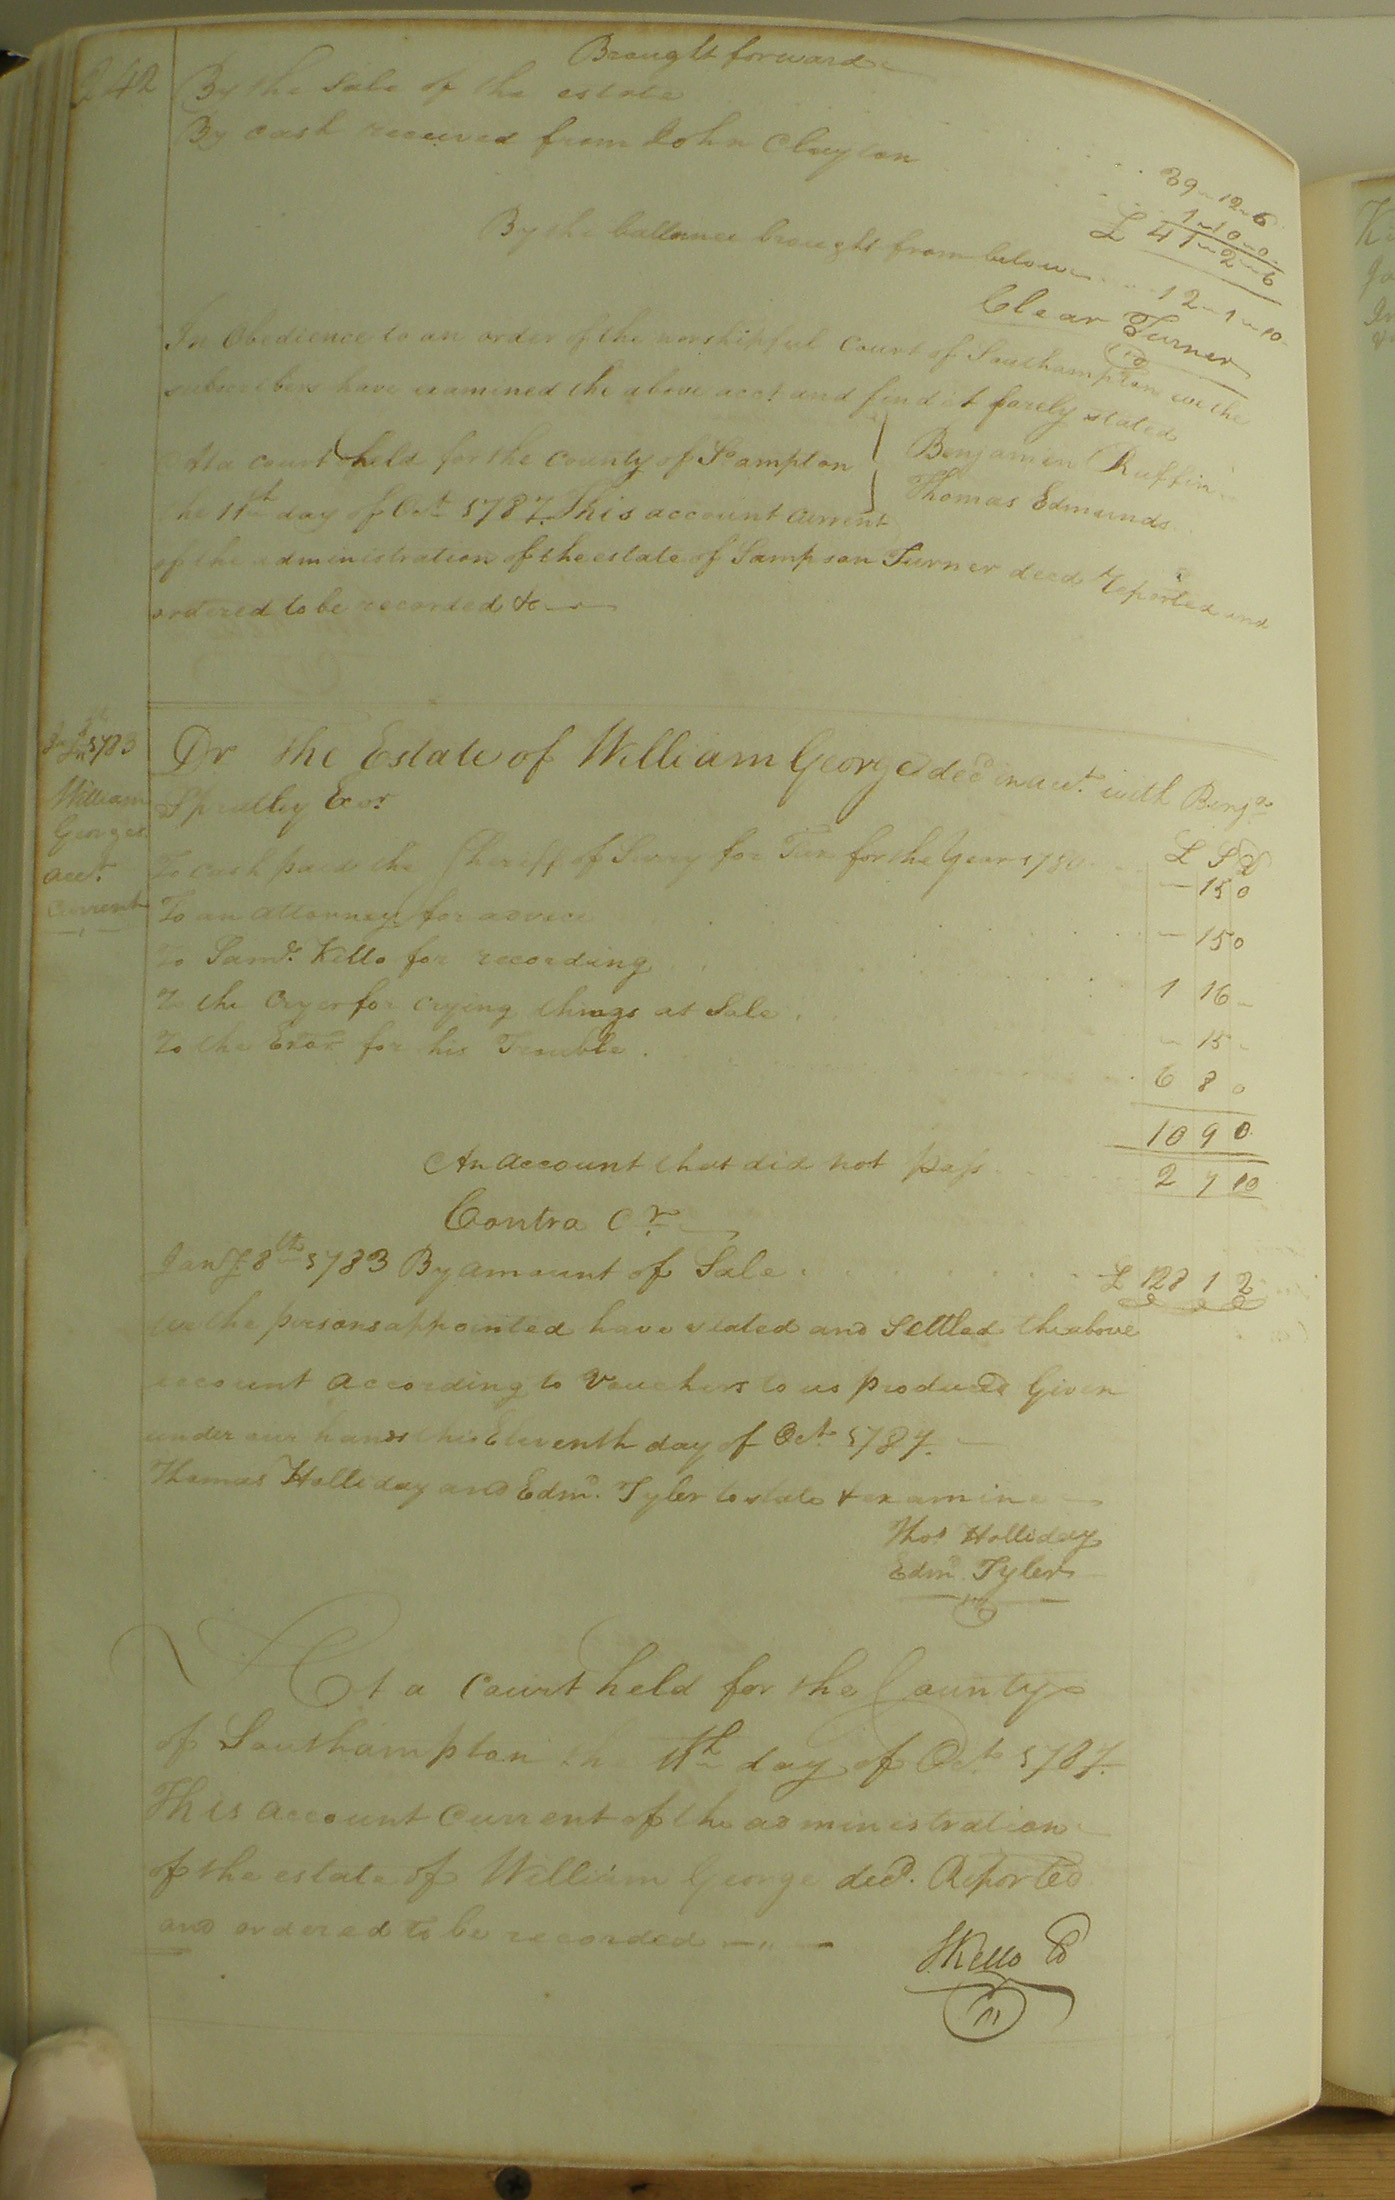 242
Brought forward
By the Sale of the estate
By cash received from John Clayton
39 - 12 - 6
1 - 10 - 0
£ 41 - 2 - 6
By the ballance brought from below 12 - 1 - 10
Clear Turner
In Obedience to an order of the worshipful Court of Southampton we the
subscribers have examined the above acct. and find it farely stated
Benjamin Ruffin
Thomas Edmunds
At a court held for the County of So ampton
the 11th day of Octr 1787. This account current
of the administration of the estate of Sampson Turner decd Reported and
ordered to be recorded &
1783
William
Georges
acct.
Current
Dr The Estate of William George decd in acct. with Benja
Spratley Exor
£ S D
To cash paid the Sheriff of Surry for Tax for the Year 1780 - 15 0
To an attorney for advice - 15 0
To Saml. Kello for recording 1 16 -
To the Cryer for crying things at Sale - 15 -
To the Exor for his Trouble 6 8 0
10 9 0
An account that did not pass 2 7 10
Contra Cr.
Jany 8th 1783 By amount of Sale £ 128 1 2
we the persons appointed have stated and settled the above
account according to Vouchers to us produced Given
under our hands this Eleventh day of Octr 1787.
Thomas Holliday and Edmd. Tyler to state & examine
Thos Holliday
Edmd Tyler
At a Court held for the County
of Southampton the 11th day of Octr 1787.
This account Current of the administration
of the estate of William George decd. Reported
and ordered to be recorded
S Kello